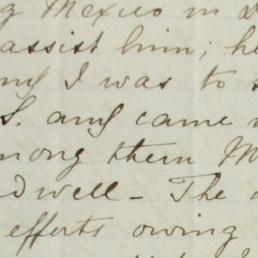 g Mexico in
assist him; he
and I was to s
S. and came
mong them M
dwell - The
efforts owing